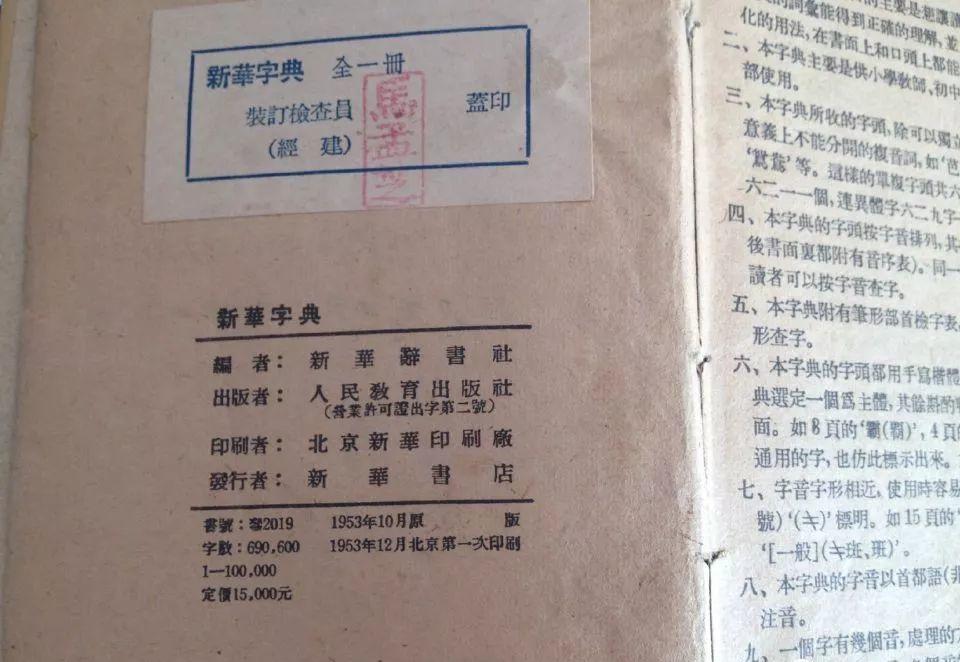 新華字典 全一冊
裝訂檢查員 蓋印
(經 建)
馬孟芝
新華字典
編者： 新華辭書社
出版者： 人民教育出版社
(營業許可證出字第二號)
印刷者： 北京新華印刷廠
發行者： 新華書店
書號：零2019 1953年10月原 版
字數：690,600 1953年12月北京第一次印刷
1—100,000
定價15,000元
的主要是想讓讀
的詞彙能得到正確的理解，並
化的用法，在書面上和口頭上都能
二、本字典主要是供小學教師、初中
部使用。
三、本字典所收的字頭，除可以獨立
意義上不能分開的複音詞，如‘芭
‘鴛鴦’等。這樣的單複字頭共六
六二一一個，連異體字六二九字
四、本字典的字頭按字音排列，其
後書面裏都附有音序表)。同一
讀者可以按字音查字。
五、本字典附有筆形部首檢字表，
形查字。
六、本字典的字頭都用手寫楷體
典選定一個爲主體，其餘斟酌
面。如8頁的‘霸(覇)’，4頁的
通用的字，也仿此標示出來。
七、字音字形相近，使用時容易
號)‘(キ)’標明。如15頁的‘
‘[一般](キ班、班)’。
八、本字典的字音以首都語(非
注音。
九、一個字有幾個音，處理的方